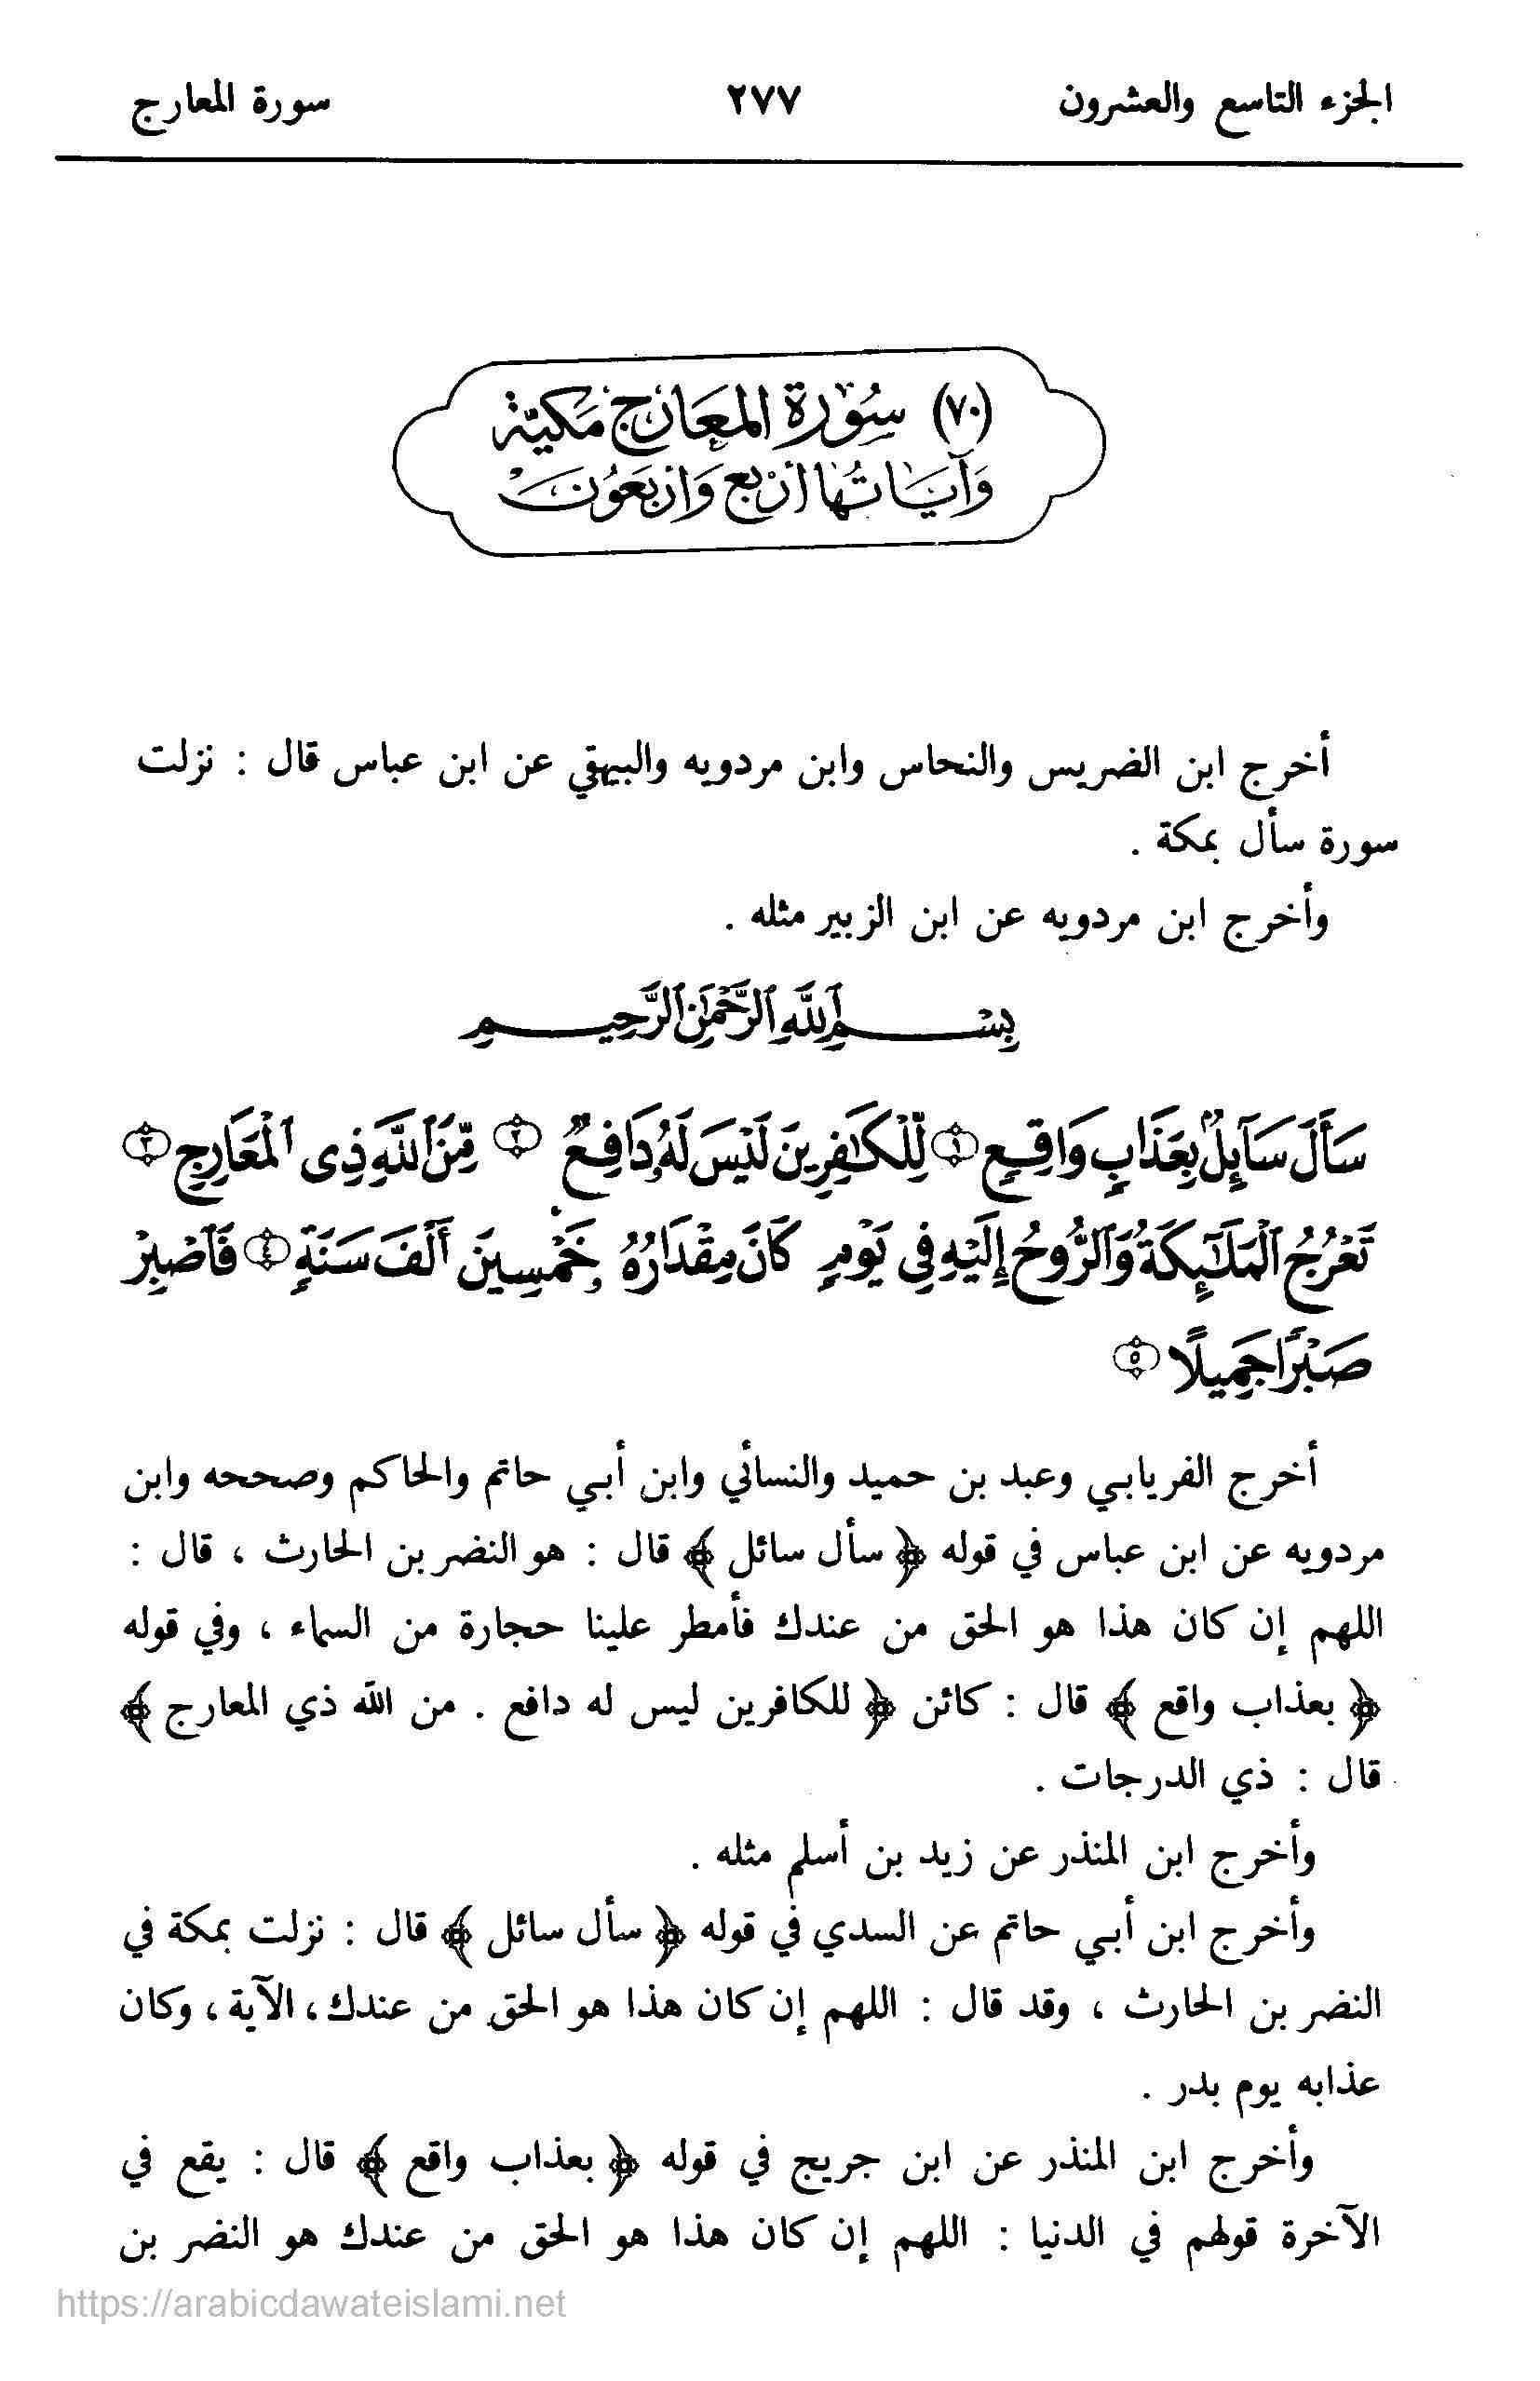 الجزء التاسع والعشرون ٢٧٧ سورة المعارج
(٧٠) سُورَة المعَارج مَكيّة
وَآيَاتُهَا أرْبَع وَارْبَعُون
أخرج ابن الضريس والنحاس وابن مردويه والبيهقي عن ابن عباس قال : نزلت
سورة سأل بمكة .
وأخرج ابن مردويه عن ابن الزبير مثله .
بِسْمِ ٱللَّهِ ٱلرَّحْمَٰنِ ٱلرَّحِيمِ
سَأَلَ سَآئِلٌۢ بِعَذَابٍ وَاقِعٍ ١ لِّلْكَٰفِرِينَ لَيْسَ لَهُۥ دَافِعٌ ٢ مِّنَ ٱللَّهِ ذِى ٱلْمَعَارِجِ ٣
تَعْرُجُ ٱلْمَلَٰٓئِكَةُ وَٱلرُّوحُ إِلَيْهِ فِى يَوْمٍ كَانَ مِقْدَارُهُۥ خَمْسِينَ أَلْفَ سَنَةٍ ٤ فَٱصْبِرْ
صَبْرًا جَمِيلًا ٥
أخرج الفريابي وعبد بن حميد والنسائي وابن أبي حاتم والحاكم وصححه وابن
مردويه عن ابن عباس في قوله ﴿ سأل سائل ﴾ قال : هو النضر بن الحارث ، قال :
اللهم إن كان هذا هو الحق من عندك فأمطر علينا حجارة من السماء ، وفي قوله
﴿ بعذاب واقع ﴾ قال : كائن ﴿ للكافرين ليس له دافع . من الله ذي المعارج ﴾
قال : ذي الدرجات .
وأخرج ابن المنذر عن زيد بن أسلم مثله .
وأخرج ابن أبي حاتم عن السدي في قوله ﴿ سأل سائل ﴾ قال : نزلت بمكة في
النضر بن الحارث ، وقد قال : اللهم إن كان هذا هو الحق من عندك ، الآية ، وكان
عذابه يوم بدر .
وأخرج ابن المنذر عن ابن جريج في قوله ﴿ بعذاب واقع ﴾ قال : يقع في
الآخرة قولهم في الدنيا : اللهم إن كان هذا هو الحق من عندك هو النضر بن
https://arabicdawateislami.net